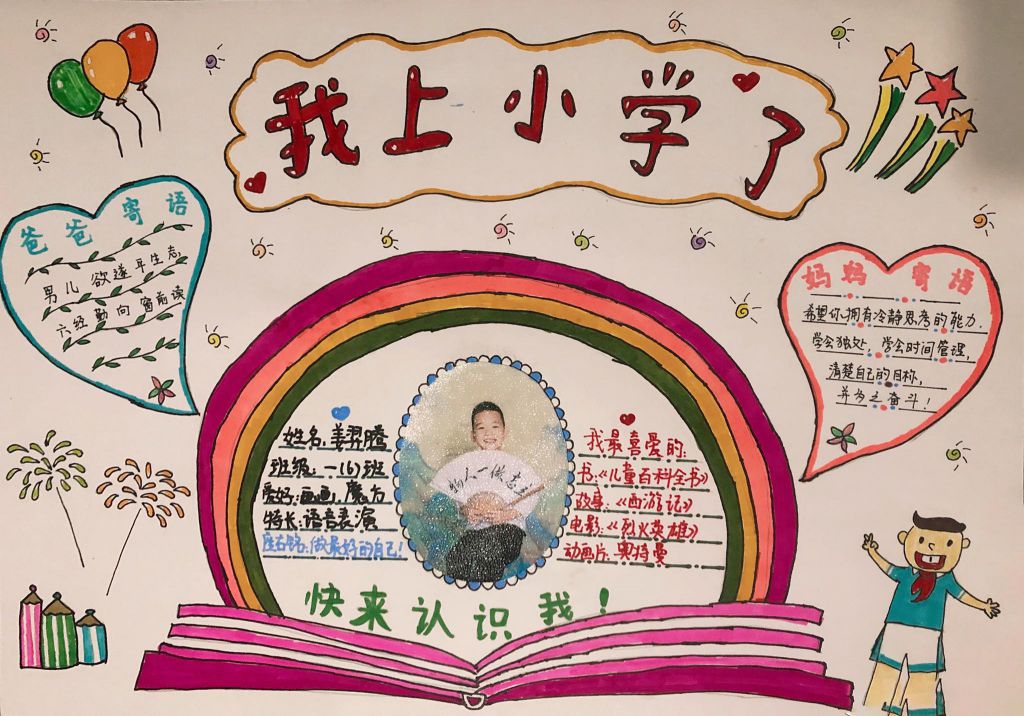 我上小学了
爸爸寄语
男儿欲遂平生志
六经勤向窗前读
妈妈寄语
希望你拥有冷静思考的能力,
学会独处,学会时间管理,
清楚自己的目标,
并为之奋斗!
姓名:姜羿腾
班级:一(6)班
爱好:画画,魔方
特长:语言表演
座右铭:做最好的自己!
我最喜爱的:
书:《儿童百科全书》
故事:《西游记》
电影:《烈火英雄》
动画片:奥特曼
快来认识我!